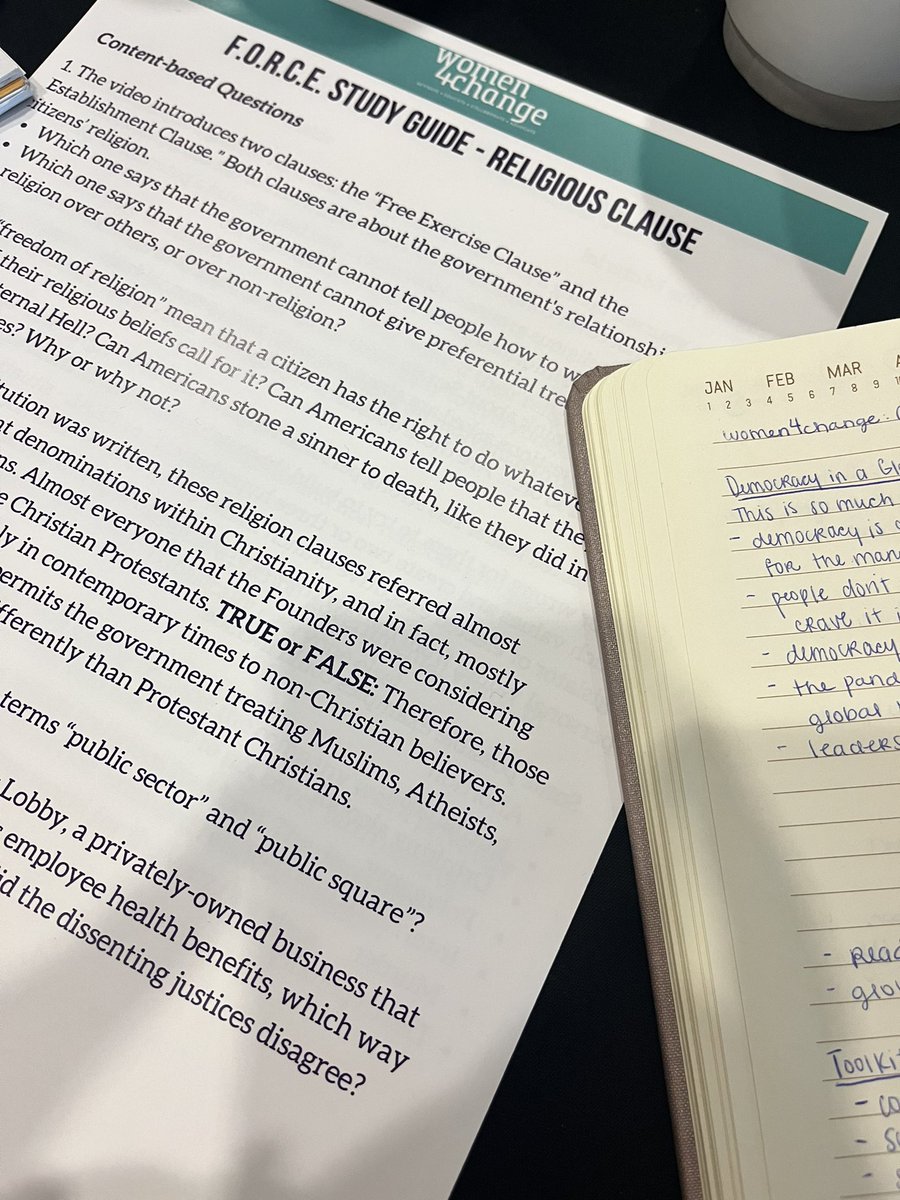 women
4change
F.O.R.C.E. STUDY GUIDE - RELIGIOUS CLAUSE
Content-based Questions
1. The video introduces two clauses: the “Free Exercise Clause” and the
Establishment Clause.” Both clauses are about the government's
citizens’ religion.
• Which one says that the government cannot tell people how to
• Which one says that the government cannot give preferential
religion over others, or over non-religion?
“freedom of religion” mean that a citizen has the right to do
their religious beliefs call for it? Can Americans tell people that
Hell? Can Americans stone a sinner to death, like they did in
Why or why not?
was written, these religion clauses referred almost
denominations within Christianity, and in fact, mostly
Almost everyone that the Founders were considering
Christian Protestants. TRUE or FALSE: Therefore, those
in contemporary times to non-Christian believers.
permits the government treating Muslims, Atheists,
differently than Protestant Christians.
terms “public sector” and “public square”?
Lobby, a privately-owned business that
employee health benefits, which way
did the dissenting justices disagree?
JAN FEB MAR
1 2 3 4 5 6 7 8 9
women4change:
Democracy in a
This is so much
- democracy is
for the
- people don't
crave it
- democracy
- the
global
- leaders
Toolkit